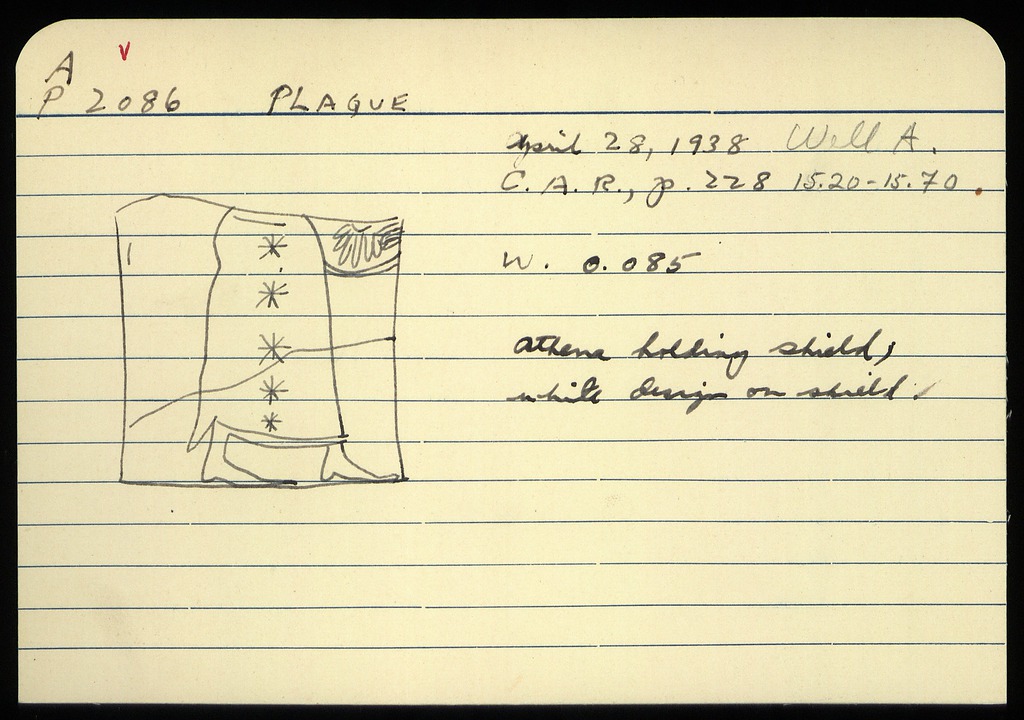 A v
P 2086 PLAQUE
April 28, 1938 Well A.
C. A. R., p. 228 15.20-15.70.
W. 0.085
Athena holding shield;
white design on shield.